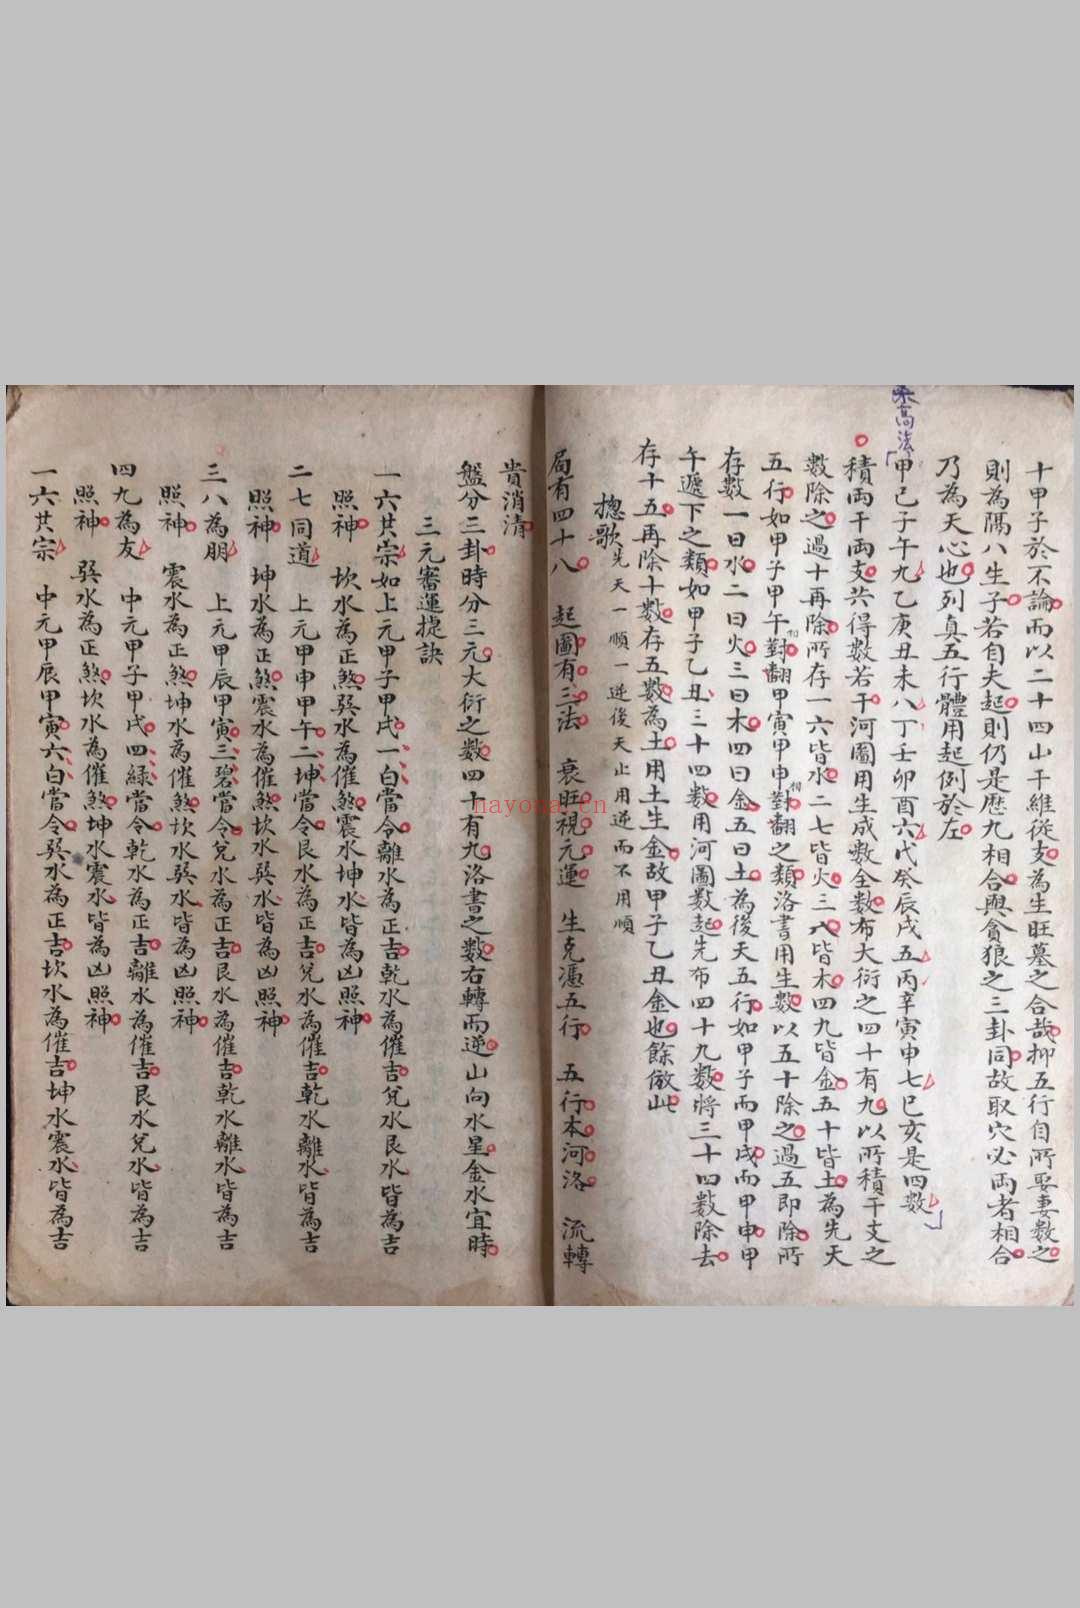 十甲子於不論而以二十四山干維從支為生旺墓之合哉抑五行自所娶妻數之
則為隔八生子若自夫起則仍是歷九相合與貪狼之三卦同故取穴必兩者相合
乃為天心也列真五行體用起例於左
甲己子午九乙庚丑未八丁壬卯酉六戊癸辰戌五丙辛寅申七巳亥是四數
積兩干兩支共得數若干河圖用生成數全數布大衍之四十有九以所積干支之
數除之過十再除所存一六皆水二七皆火三八皆木四九皆金五十皆土為先天
五行如甲子甲午相對翻甲寅甲申相對翻之類洛書用生數以五十除之過五即除所
存數一曰水二曰火三曰木四曰金五曰土為後天五行如甲子而甲戌而甲申甲
午遞下之類如甲子乙丑三十四數用河圖數起先布四十九數將三十四數除去
存十五再除十數存五數為土用土生金故甲子乙丑金也餘倣此
摠歌 先天一順一逆後天止用逆而不用順
局有四十八 起圖有三法 衰旺視元運 生克憑五行 五行本河洛 流轉
貴消清
盤分三卦時分三元大衍之數四十有九洛書之數右轉而逆山向水星金水宜時
三元審運捷訣
一六共宗如上元甲子甲戌一白當令離水為正吉乾水為催吉兌水艮水皆為吉
照神 坎水為正煞巽水為催煞震水坤水皆為凶照神
二七同道 上元甲申甲午二坤當令艮水為正吉兌水為催吉乾水離水皆為吉
照神 坤水為正煞震水為催煞坎水巽水皆為凶照神
三八為朋 上元甲辰甲寅三碧當令兌水為正吉艮水為催吉乾水離水皆為吉
照神 震水為正煞坤水為催煞坎水巽水皆為凶照神
四九為友 中元甲子甲戌四綠當令乾水為正吉離水為催吉艮水兌水皆為吉
照神 巽水為正煞坎水為催煞坤水震水皆為凶照神
一六共宗 中元甲辰甲寅六白當令巽水為正吉坎水為催吉坤水震水皆為吉
nayona.cn